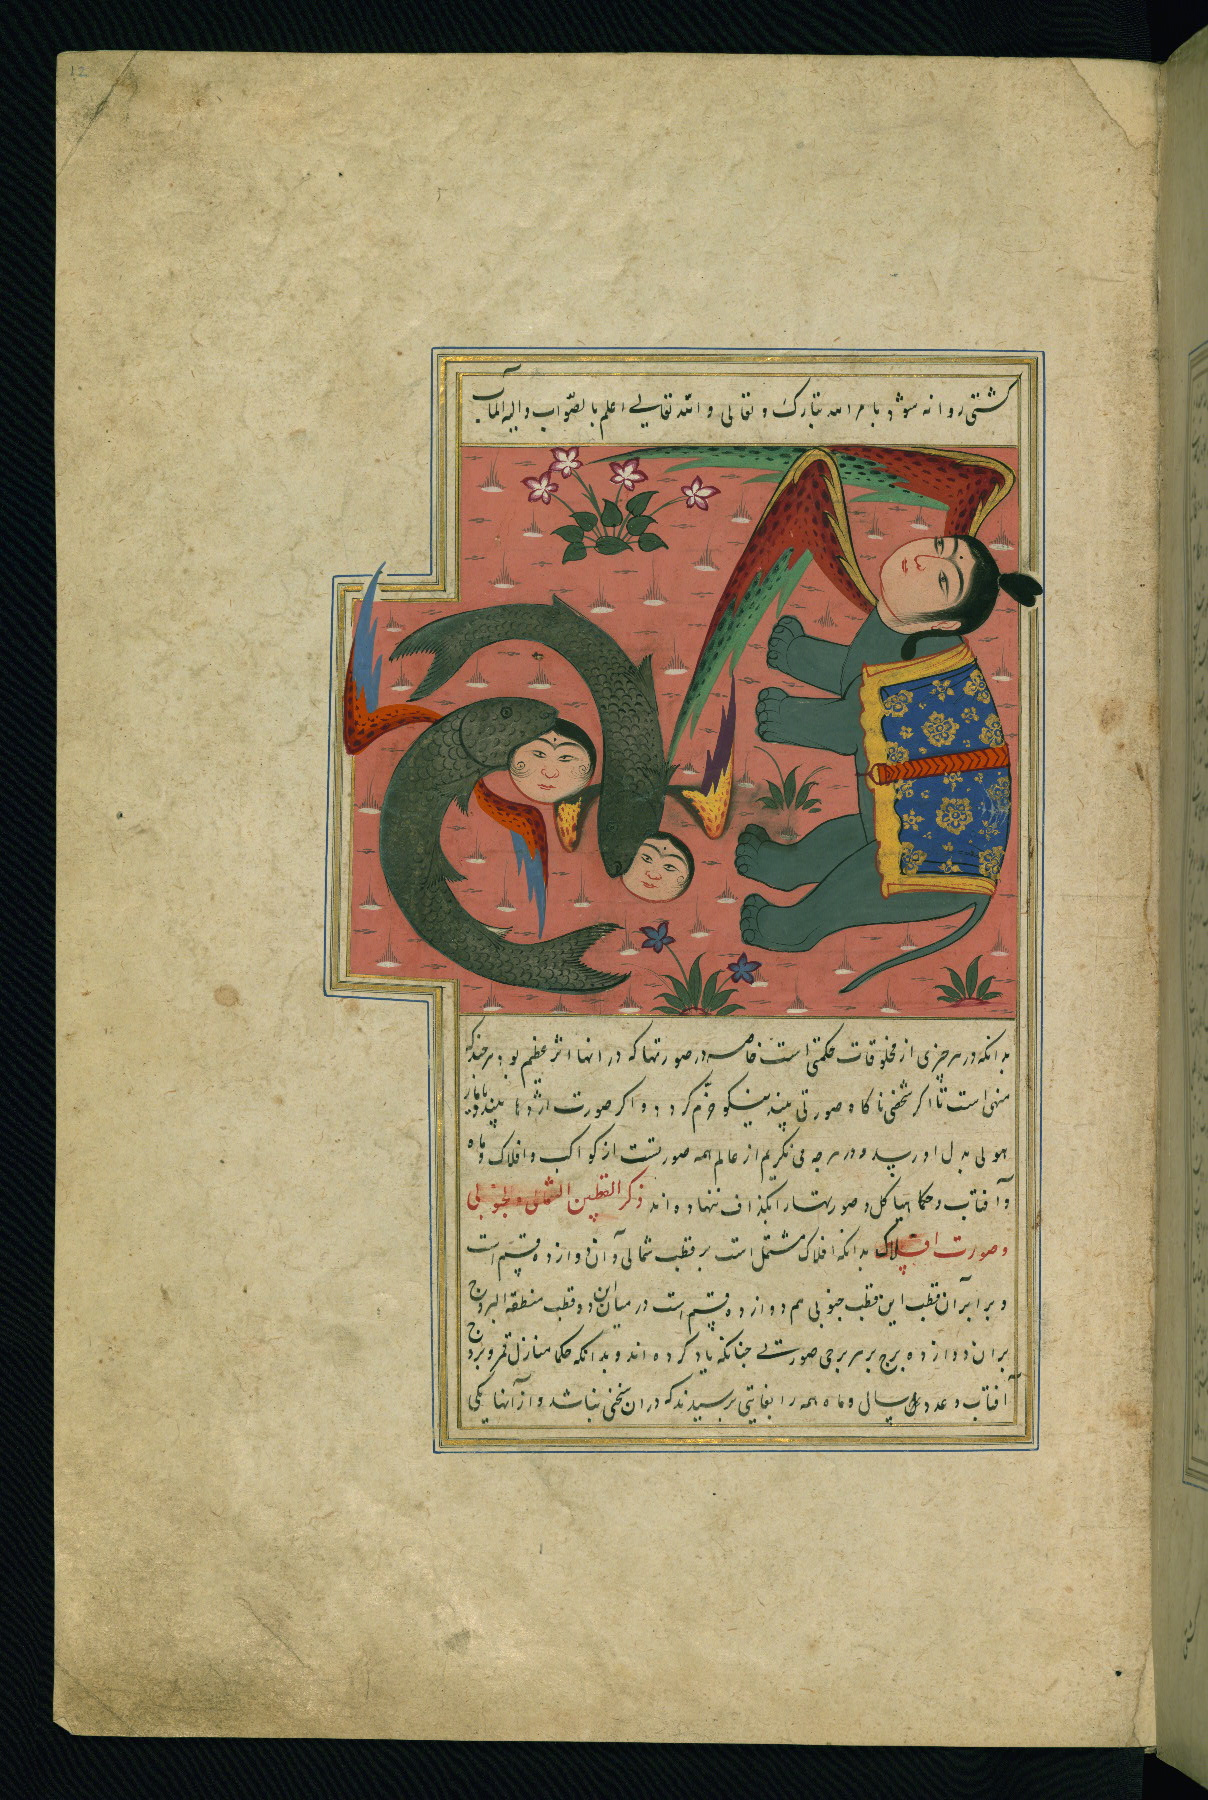 12
کشتی روانه شود بامر الله تبارک و تعالی والله تعالی اعلم بالصواب والیه المآب
بدانکه در هر چیزی از مخلوقات حکمتی است خاصه در صورتها که در آنها اثر عظیم بود هر چند که
منهی است تا اگر شخصی ناگاه صورتی بیند نیکو خرم کردد و اکر صورت اژدها بیند
هولی بدل او رسد و در هر چه می نکریم از عالم همه صورتست از کواکب و افلاک و ماه
و آفتاب و حکما هیاکل و صورتها را بکذاف ننهاده اند ذکر القطبین الشمالی والجنوبی
و صورت افلاک بدانکه افلاک مشتمل است بر قطب شمالی و آن دوازده قسم است
و برابر آن قطب این قطب جنوبی هم دوازده قسم است در میان این دو قطب منطقه البروج
بران دوازده برج بر هر برجی صورتی جنانکه یاد کرده اند و بدانکه حکما منازل قمر و بروج
آفتاب و عدد سال و ماه همه را بغایتی برسیدند که دران سخنی نباشد و از آنها یکی